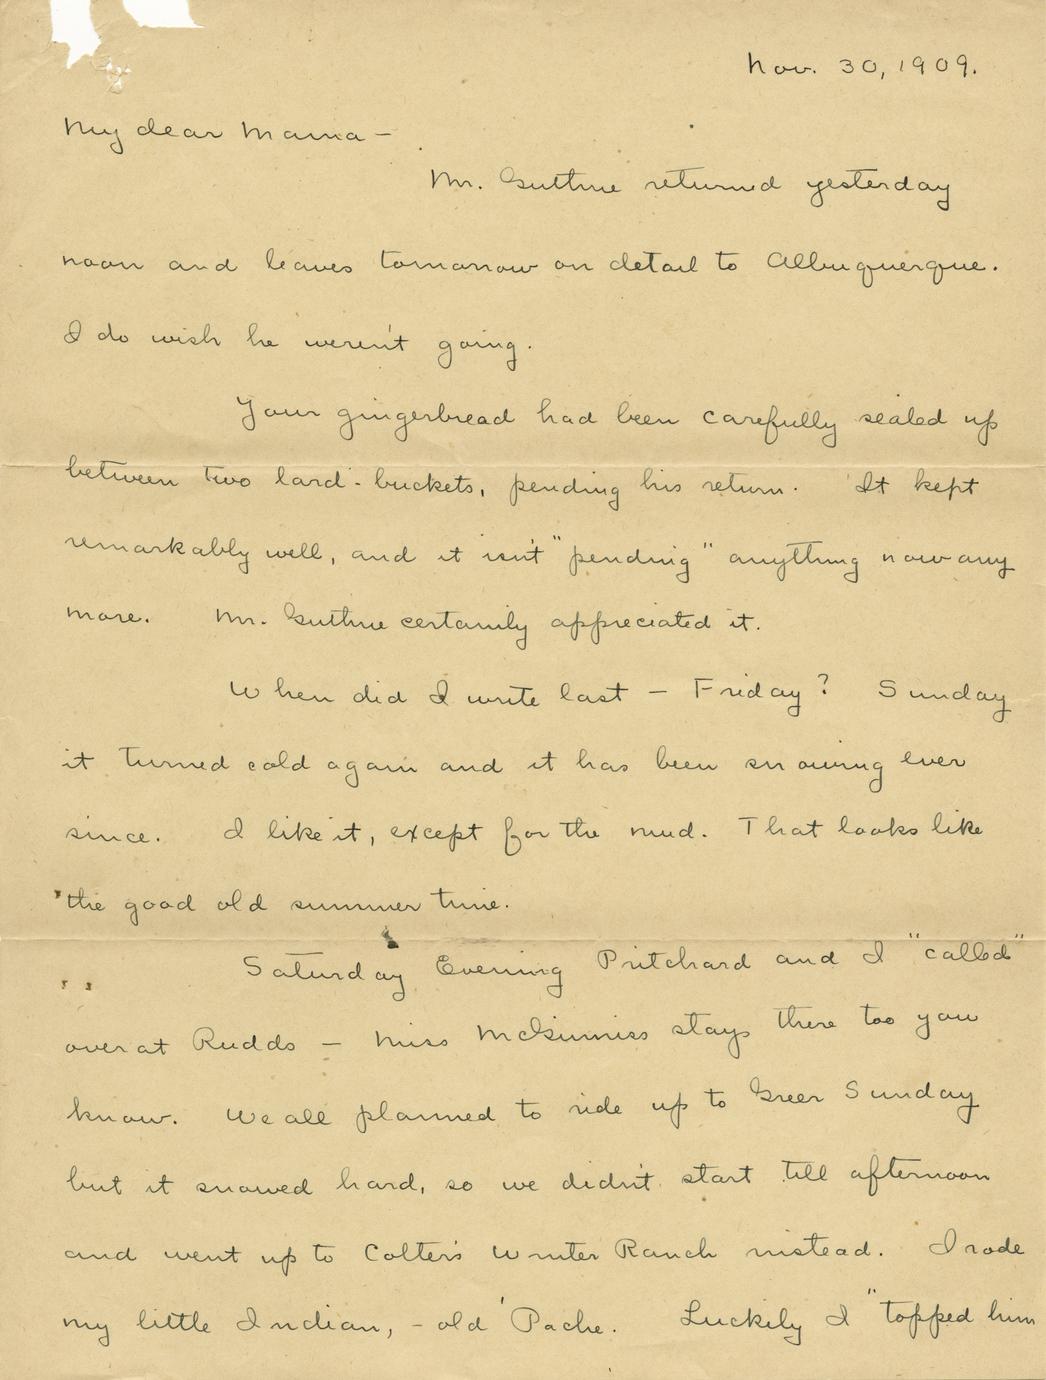 Nov. 30, 1909.
My dear Mama —
Mr. Guthrie returned yesterday
noon and leaves tomorrow on detail to Albuquerque.
I do wish he weren't going.
Your gingerbread had been carefully sealed up
between two lard-buckets, pending his return. It kept
remarkably well, and it isn't "pending" anything now any
more. Mr. Guthrie certainly appreciated it.
When did I write last — Friday? Sunday
it turned cold again and it has been snowing ever
since. I like it, except for the mud. That looks like
the good old summer time.
Saturday Evening Pritchard and I "called"
over at Rudds — Miss McGinniss stays there too you
know. We all planned to ride up to Greer Sunday
but it snowed hard, so we didn't start till afternoon
and went up to Colter's Winter Ranch instead. I rode
my little Indian, - old 'Pache. Luckily I "topped him